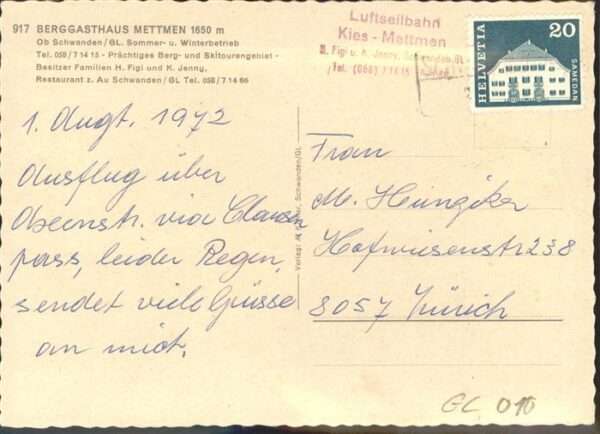 917 BERGGASTHAUS METTMEN 1650 m
Ob Schwanden/GL. Sommer- u. Winterbetrieb
Tel. 058/7 14 15 - Prächtiges Berg- und Skitourengebiet -
Besitzer Familien H. Figi und K. Jenny,
Restaurant z. Au Schwanden/GL Tel. 058/7 14 66
Luftseilbahn
Kies - Mettmen
Figi u. Jenny, Schwanden/GL
Tel. (058) 7 14 15
HELVETIA
20
SAMEDAN
1. Augt. 1972
Ausflug über
via Clausen
pass, leider Regen,
sendet viele Grüsse
an mich.
Verlag: Schwanden/GL
Frau
M. Heiniger
Hofwiesenstr 238
8057 Zürich
GL 010